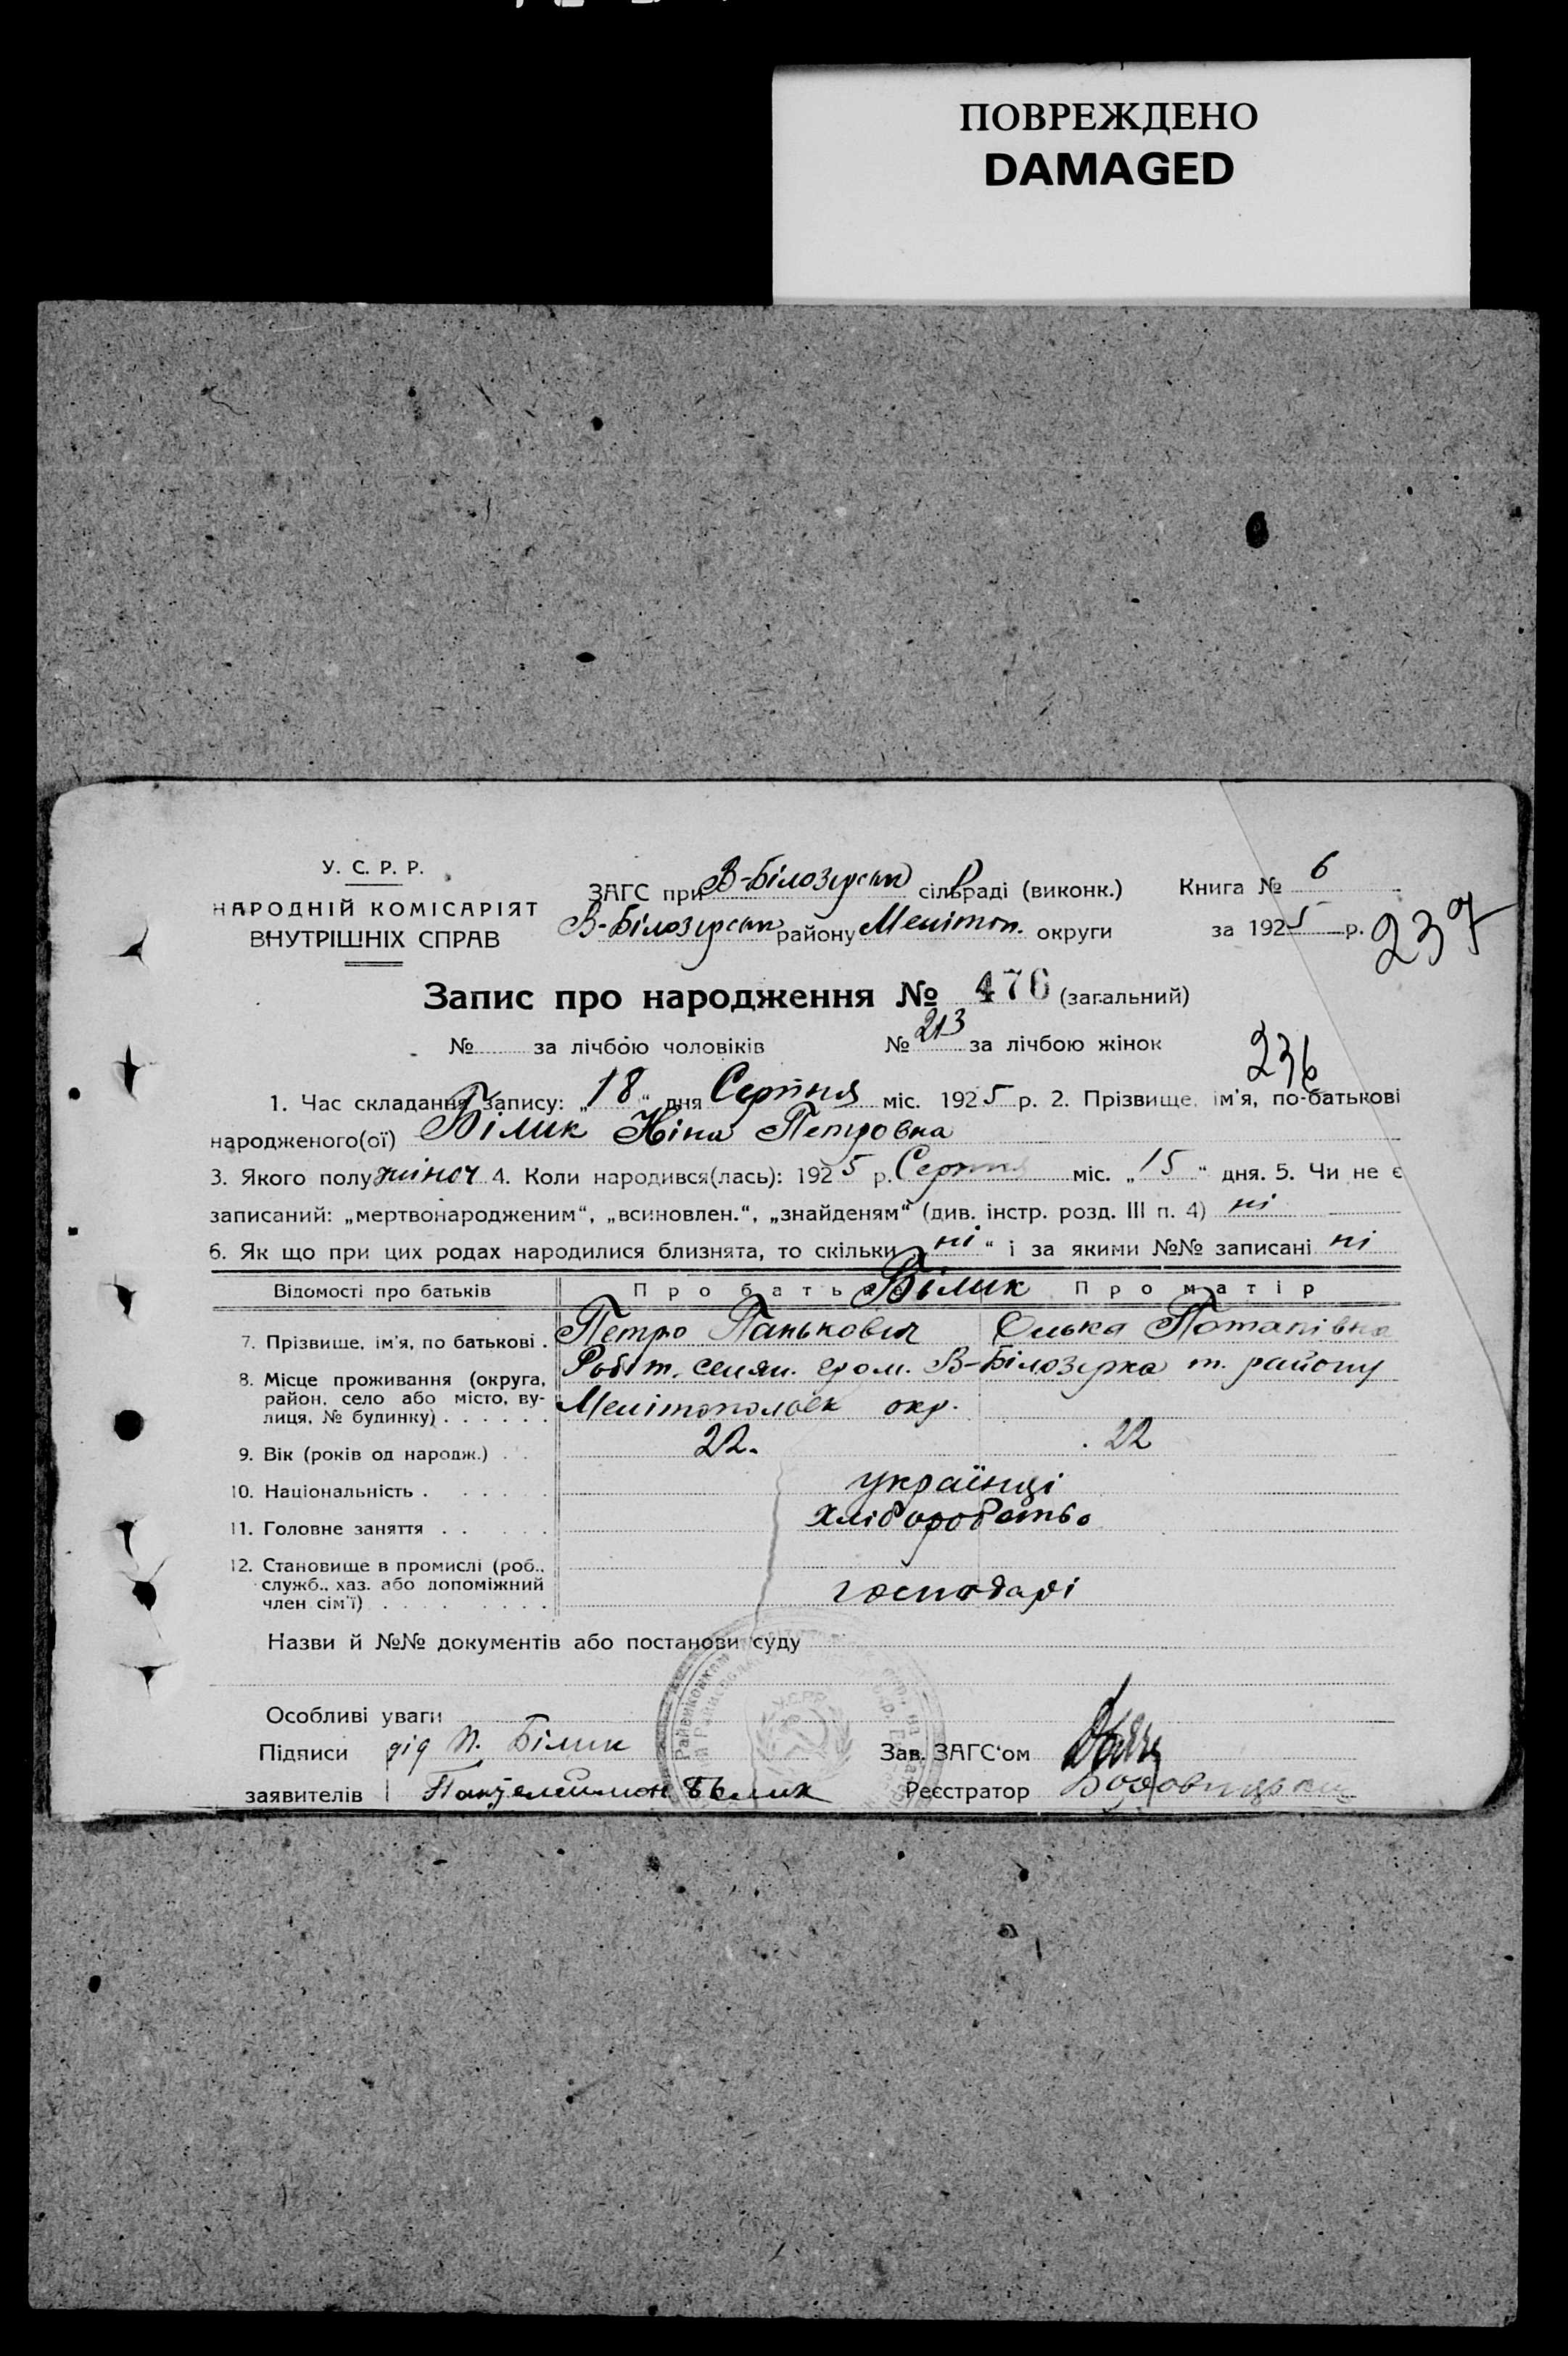 ПОВРЕЖДЕНО
DAMAGED
У. С. Р. Р.
НАРОДНІЙ КОМІСАРІЯТ
ВНУТРІШНІХ СПРАВ
ЗАГС при В-Білозерськ сільраді (виконк.)
В-Білозерськ району Меліт​оп. округи
Книга № 6
за 1925 р.
237
Запис про народження № 476 (загальний)
№ за лічбою чоловіків № 213 за лічбою жінок
236
1. Час складання запису: „18“ дня Серпня міс. 1925 р. 2. Прізвище, ім'я, по-батькові
народженого(ої) Білик Ніна Петровна
3. Якого полу жіноч 4. Коли народився(лась): 1925 р. Серпня міс. „15“ дня. 5. Чи не є
записаний: „мертвонародженим“, „всиновлен.“, „знайденям“ (див. інстр. розд. III п. 4) ні
6. Як що при цих родах народилися близнята, то скільки „ні“ і за якими №№ записані ні
Відомості про батьків Про батька Білик Про матір
7. Прізвище, ім'я, по батькові . Петро Панькович Олька Потапівна
8. Місце проживання (округа, район, село або місто, вулиця, № будинку) . . . . . . селян. гром. В-Білозерка т. району
Мелітопольськ окр.
9. Вік (років од народж.) . . 22. 22
10. Національність . . . . . українці
11. Головне заняття . . . . хліборобство
12. Становище в промислі (роб., служб., хаз. або допоміжний член сім'ї) . . . . . . . . господарі
Назви й №№ документів або постанови суду
Особливі уваги
Підписи дід П. Білик Зав. ЗАГС'ом
заявителів Пантелеимон Белик Реєстратор